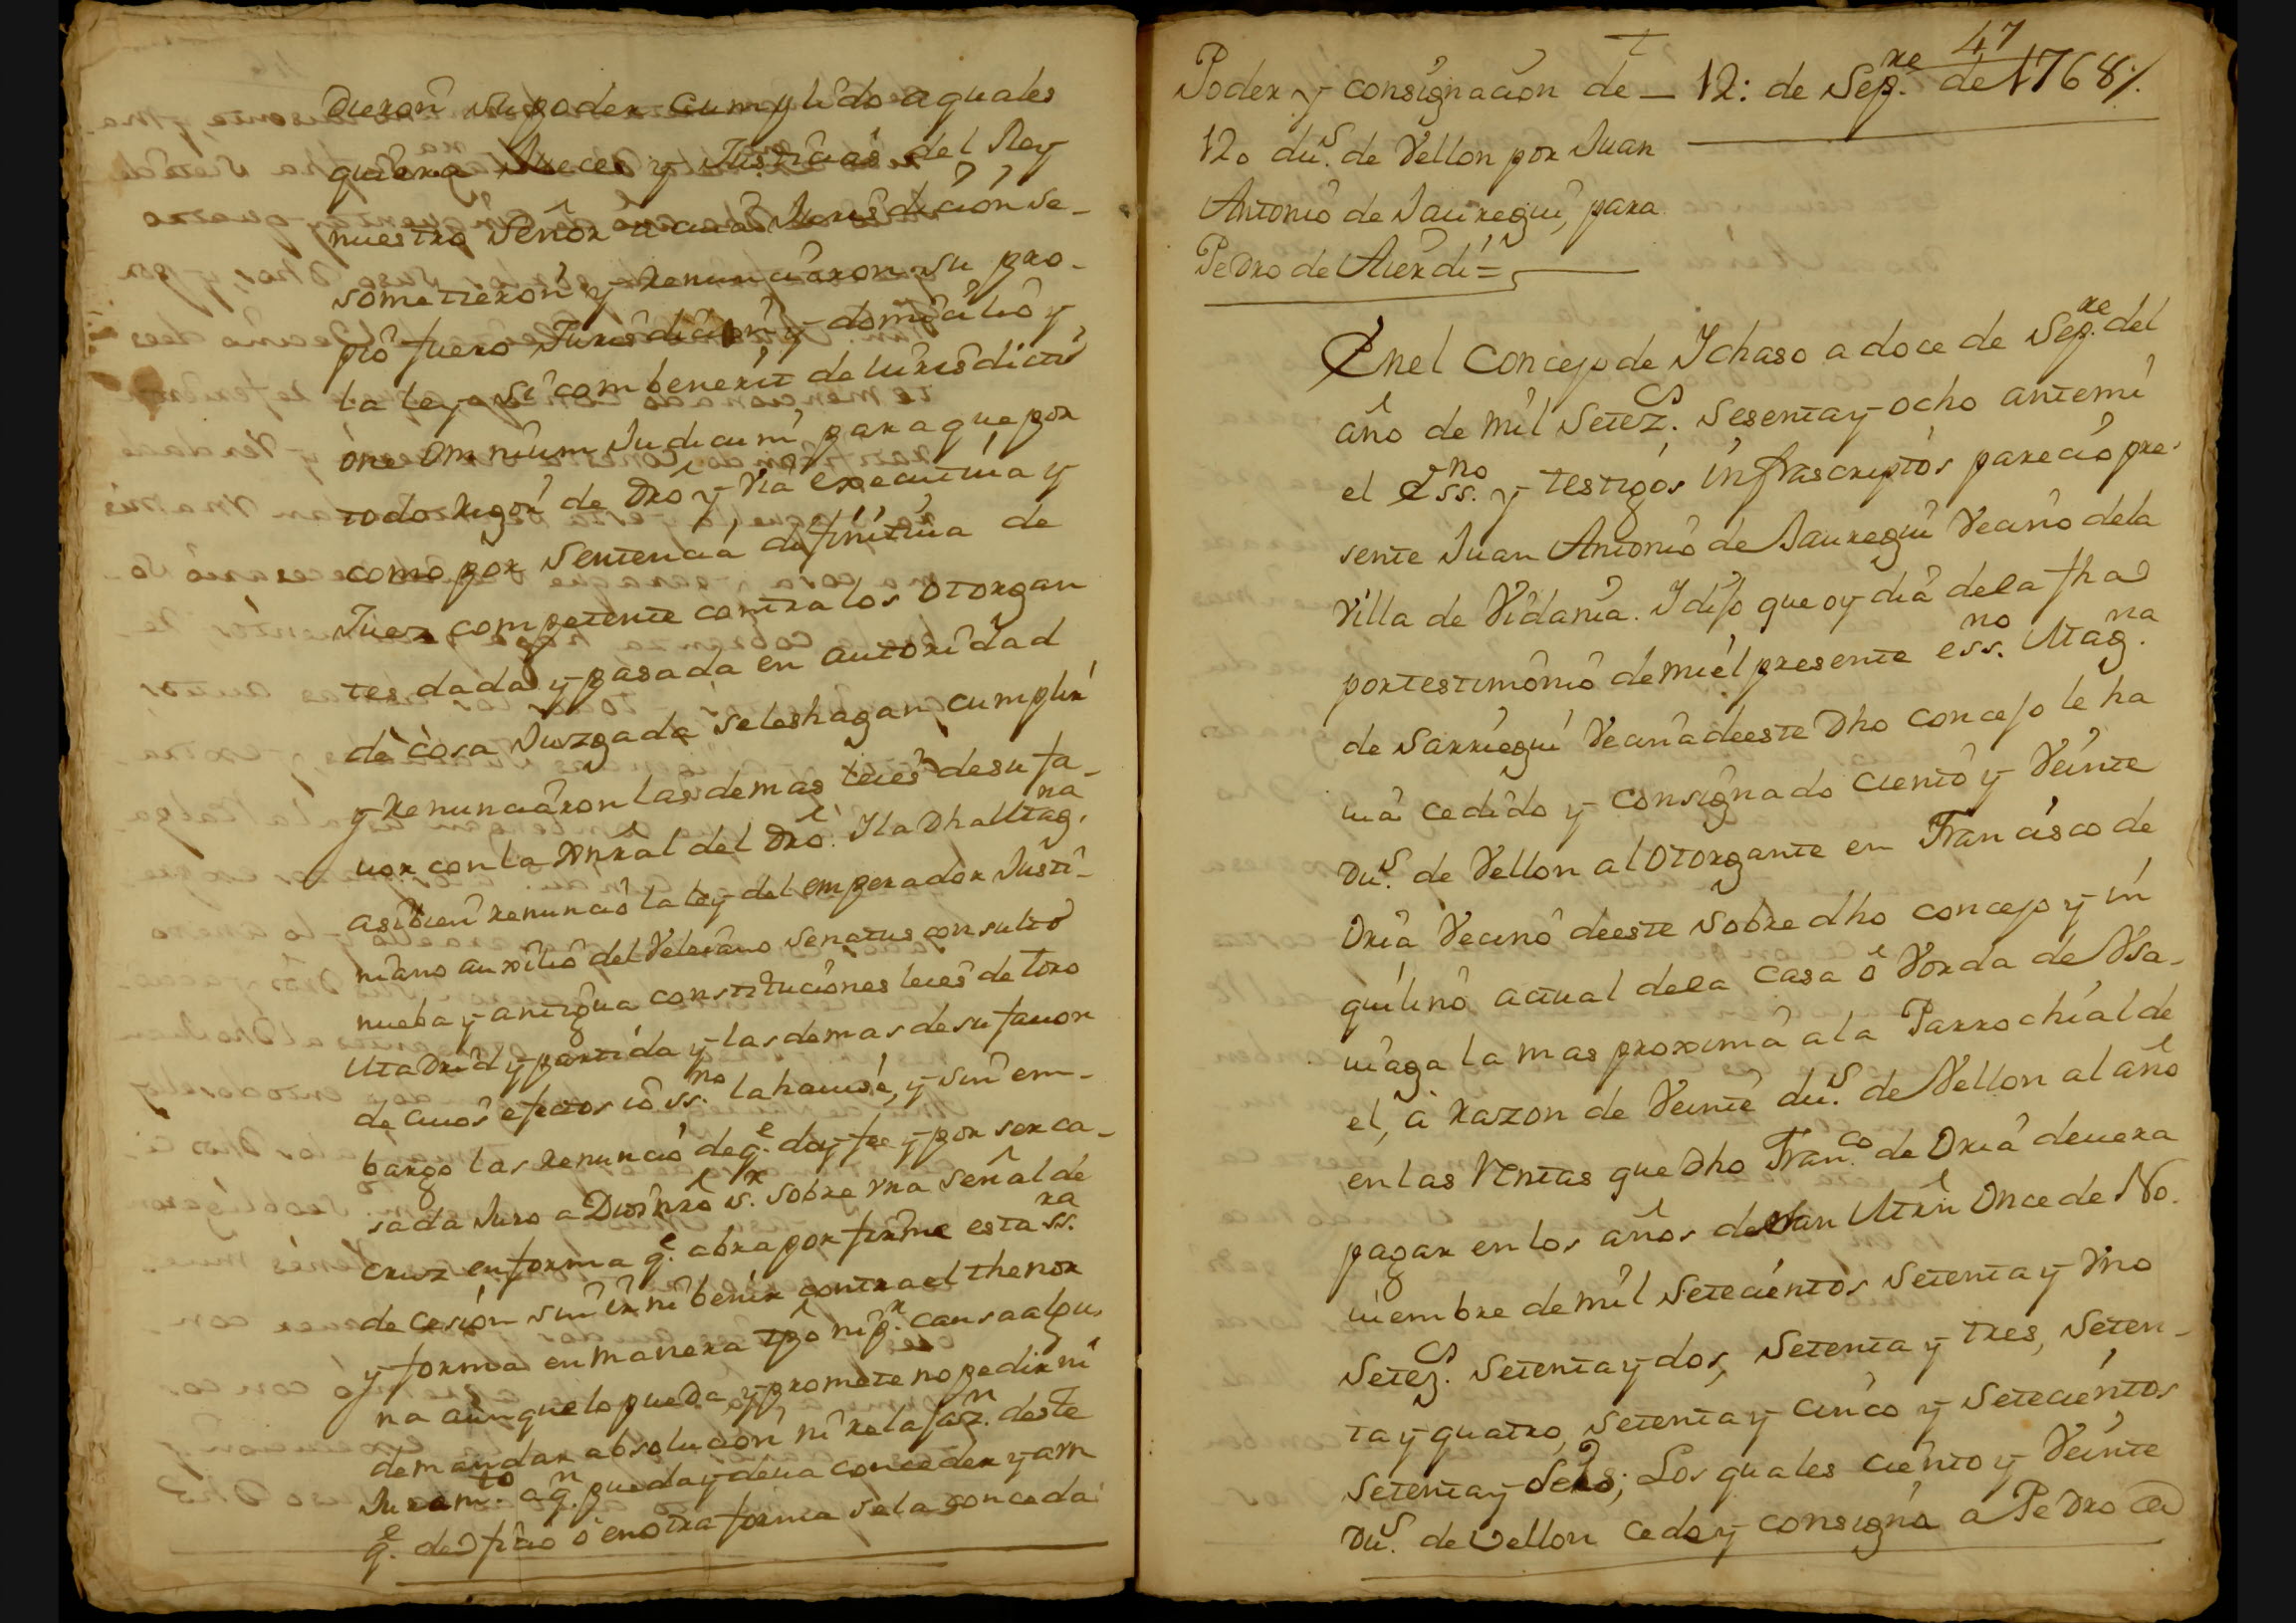 dieron su poder cumplido a quales
quiera Jueces y Justicias del Rey
nuestro Señor a cuia Jurisdición se-
sometieron y renunciaron su pro-
pio fuero Jurisdicion y domicilio y
la ley si combenerit de lurisdicti
one omnium Judicum, para que por
todo rigor de dro y via executiua y
como por Sentencia difinitiua de
Juez competente contra los otorgan
tes dada y pasada en autoridad
de cosa Juzgada se les hagan cumplir
y renunciaron las demas leies de su fa-
uor con la gnral del dro. Y la dha Mag.na
asibien renunció la ley del emperador Justi-
niano auxilio del Veleiano senatus consulto
nueba y antigua constituciones leies de Toro
Madrid y partida y las demas de su fauor
de cuios efectos io ss.no la hauisé, y sin em-
bargo las renunció de q.e doy fee y por ser ca-
sada Juro a Dios nro s.r sobre vna señal de
cruz en forma q.e abra por firme esta ss.ra
de cesion sin ir ni benir contra el thenor
y forma en manera tpo ni p.r causa algu-
na aunque lo pueda, y promete no pedir ni
demandar absolucion ni relajaz.n deste
Juram.to a q.n pueda y deua conceder y am
q.e de oficio ó en otra forma se la conceda
47
Poder y consignacion de — 12: de Sep.re de 1768/.
120 du.s de Vellon por Juan
Antonio de Jauregui, para
Pedro de Aierdi =
En el Concejo de Ichaso a doce de Sep.re del
año de mil Setez.s Sesenta y ocho ante mi
el Ess.no y testigos infrascriptos parecio pre-
sente Juan Antonio de Jauregui Vecino de la
Villa de Vidania. I dijo que oy dia de la fha
por testimonio de mi el presente ess.no Mag.na
de Sarriegui Vecina de este dho concejo le ha
uia cedido y consignado ciento y Veinte
du.s de Vellon al otorgante en Francisco de
Oria Vecino de este sobre dho concejo y in
quilino actual de la casa ó Borda de Vsa-
uiaga la mas proxima a la Parrochial de
el, a razon de Veinte du.s de Vellon al año
en las Rentas que dho Fran.co de Oria deuera
pagar en los años de San Mrñ Once de No-
uiembre de mil Setecientos setenta y vno
Setez.s Setenta y dos, Setenta y tres, Seten-
ta y quatro, setenta y cinco y Setecientos
Setenta y seis; Los quales ciento y Veinte
du.s de Vellon cede y consigna a Pedro de